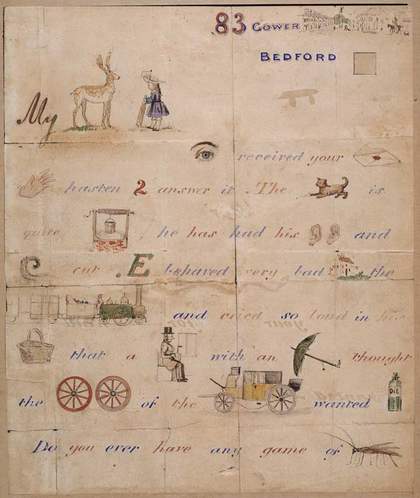 83 GOWER
BEDFORD
My
received your
hasten 2 answer it The is
quite he has had his and
cut E behaved very bad the
and cried so loud in his
that a with an thought
the of the wanted OIL
Do you ever have any game of